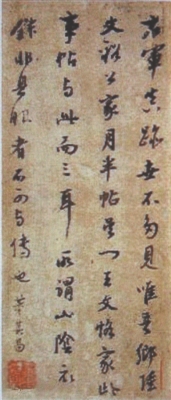 右軍真跡世不多見唯吾鄉陸
文裕公家月半帖吳門王文恪家此
事帖与此而三耳所謂山陰衣
鉢非具眼者不可与傳也董其昌